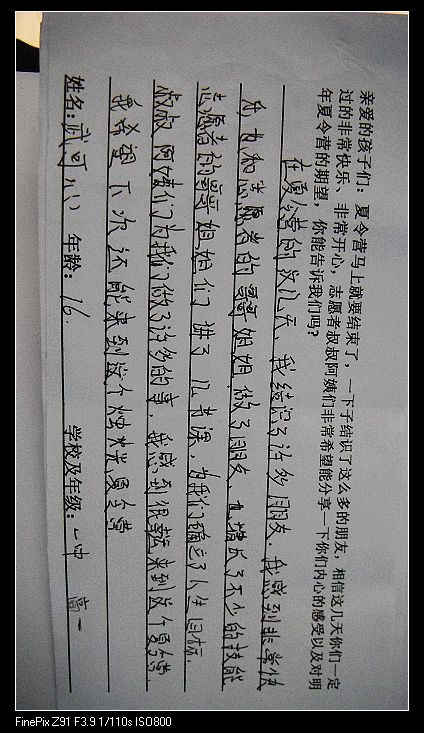 亲爱的孩子们：夏令营马上就要结束了，一下子结识了这么多的朋友，相信这几天你们一定
过的非常快乐、非常开心，志愿者叔叔阿姨们非常希望能分享一下你们内心的感受以及对明
年夏令营的期望，你能告诉我们吗？
在夏令营的这几天，我结识了许多朋友，我感到非常快
乐，也和志愿者的哥哥姐姐做了朋友，也增长了不少的技能
志愿者的哥哥姐姐们讲了几节课，为我们确立了人生目标，
叔叔阿姨们为我们做了许多的事，我感到很幸运来到这个夏令营
我希望下次还能来到这个烛光夏令营
姓名：武可 年龄：16 学校及年级：一中 高一
FinePix Z91 F3.9 1/110s ISO800